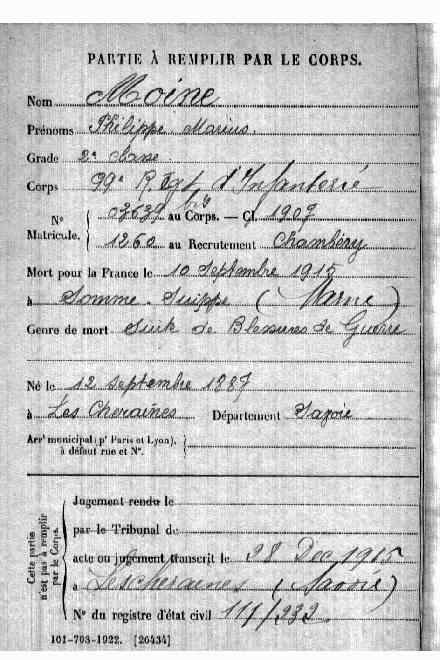 PARTIE À REMPLIR PAR LE CORPS.
Nom Moine
Prénoms Philippe Marius.
Grade 2e classe.
Corps 99e Rgt d'Infanterie
No Matricule. 03639 bis au Corps. — Cl. 1907
1260 au Recrutement Chambéry
Mort pour la France le 10 Septembre 1915
à Somme-Suippe (Marne)
Genre de mort Suite de Blessures de Guerre
Né le 12 septembre 1887
à Les Cheraines Département Savoie
Arrt municipal (pr Paris et Lyon),
à défaut rue et No.
Cette partie
n'est pas à remplir
par le Corps.
Jugement rendu le
par le Tribunal de
acte ou jugement transcrit le 28 Dec 1915
à Lescheraines (Savoie)
No du registre d'état civil 117/232
101-708-1922. [26434]